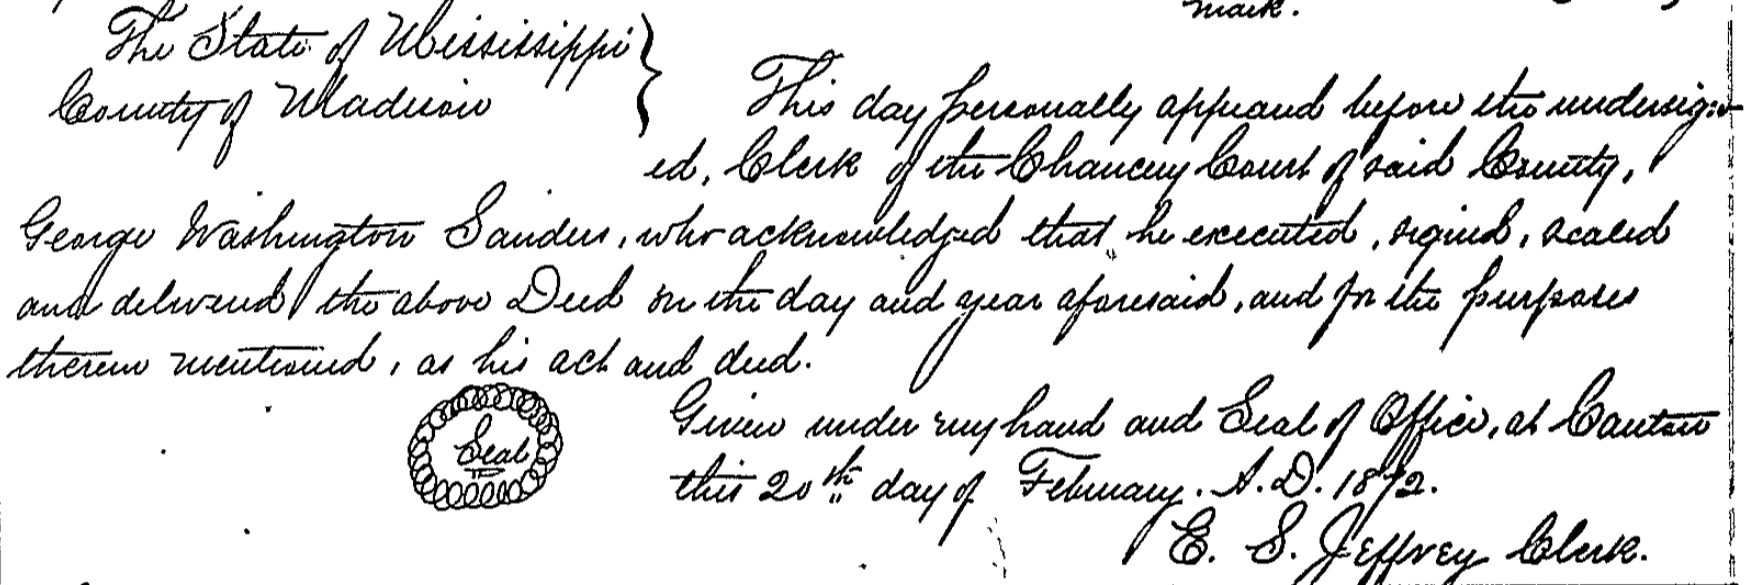 mark.
The State of Mississippi
County of Madison
This day personally appeared before the undersign-
ed, Clerk of the Chancery Court of said County,
George Washington Sanders, who acknowledged that he executed, signed, sealed
and delivered the above Deed on the day and year aforesaid, and for the purposes
therein mentioned, as his act and deed.
Seal
Given under my hand and Seal of Office, at Canton
this 20th day of February. A.D. 1872.
E. S. Jeffrey Clerk.